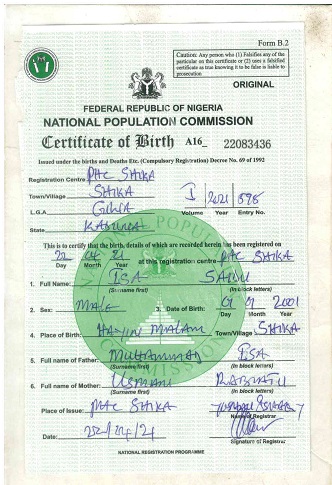 Form B.2
Caution: Any person who (1) Falsifies any of the
particular on this certificate or (2) uses a falsified
certificate as true knowing it to be false is liable to
prosecution
ORIGINAL
FEDERAL REPUBLIC OF NIGERIA
NATIONAL POPULATION COMMISSION
Certificate of Birth A16_ 22083436
Issued under the births and Deaths Etc. (Compulsory Registration) Decree No. 69 of 1992
Registration Centre PHC SHIKA
Town/Village SHIKA I 2021 898
L.G.A GIWA Volume Year Entry No.
State KADUNA
This is to certify that the birth, details of which are recorded herein has been registered on
22 04 21 at this registration centre PHC SHIKA
Day Month Year
1. Full Name: ISA SAIDU
(Surname first) (In block letters)
2. Sex: MALE 3. Date of Birth: 01 01 2001
Day Month Year
4. Place of Birth: HAYIN MALAM Town/Village SHIKA
5. Full name of Father: MUHAMMAD ISA
(Surname first) (In block letters)
6. Full name of Mother: USMAN RABIATU
(Surname first) (In block letters)
Place of Issue: PHC SHIKA
Name of Registrar
Date: 22/04/21
Signature of Registrar
NATIONAL REGISTRATION PROGRAMME